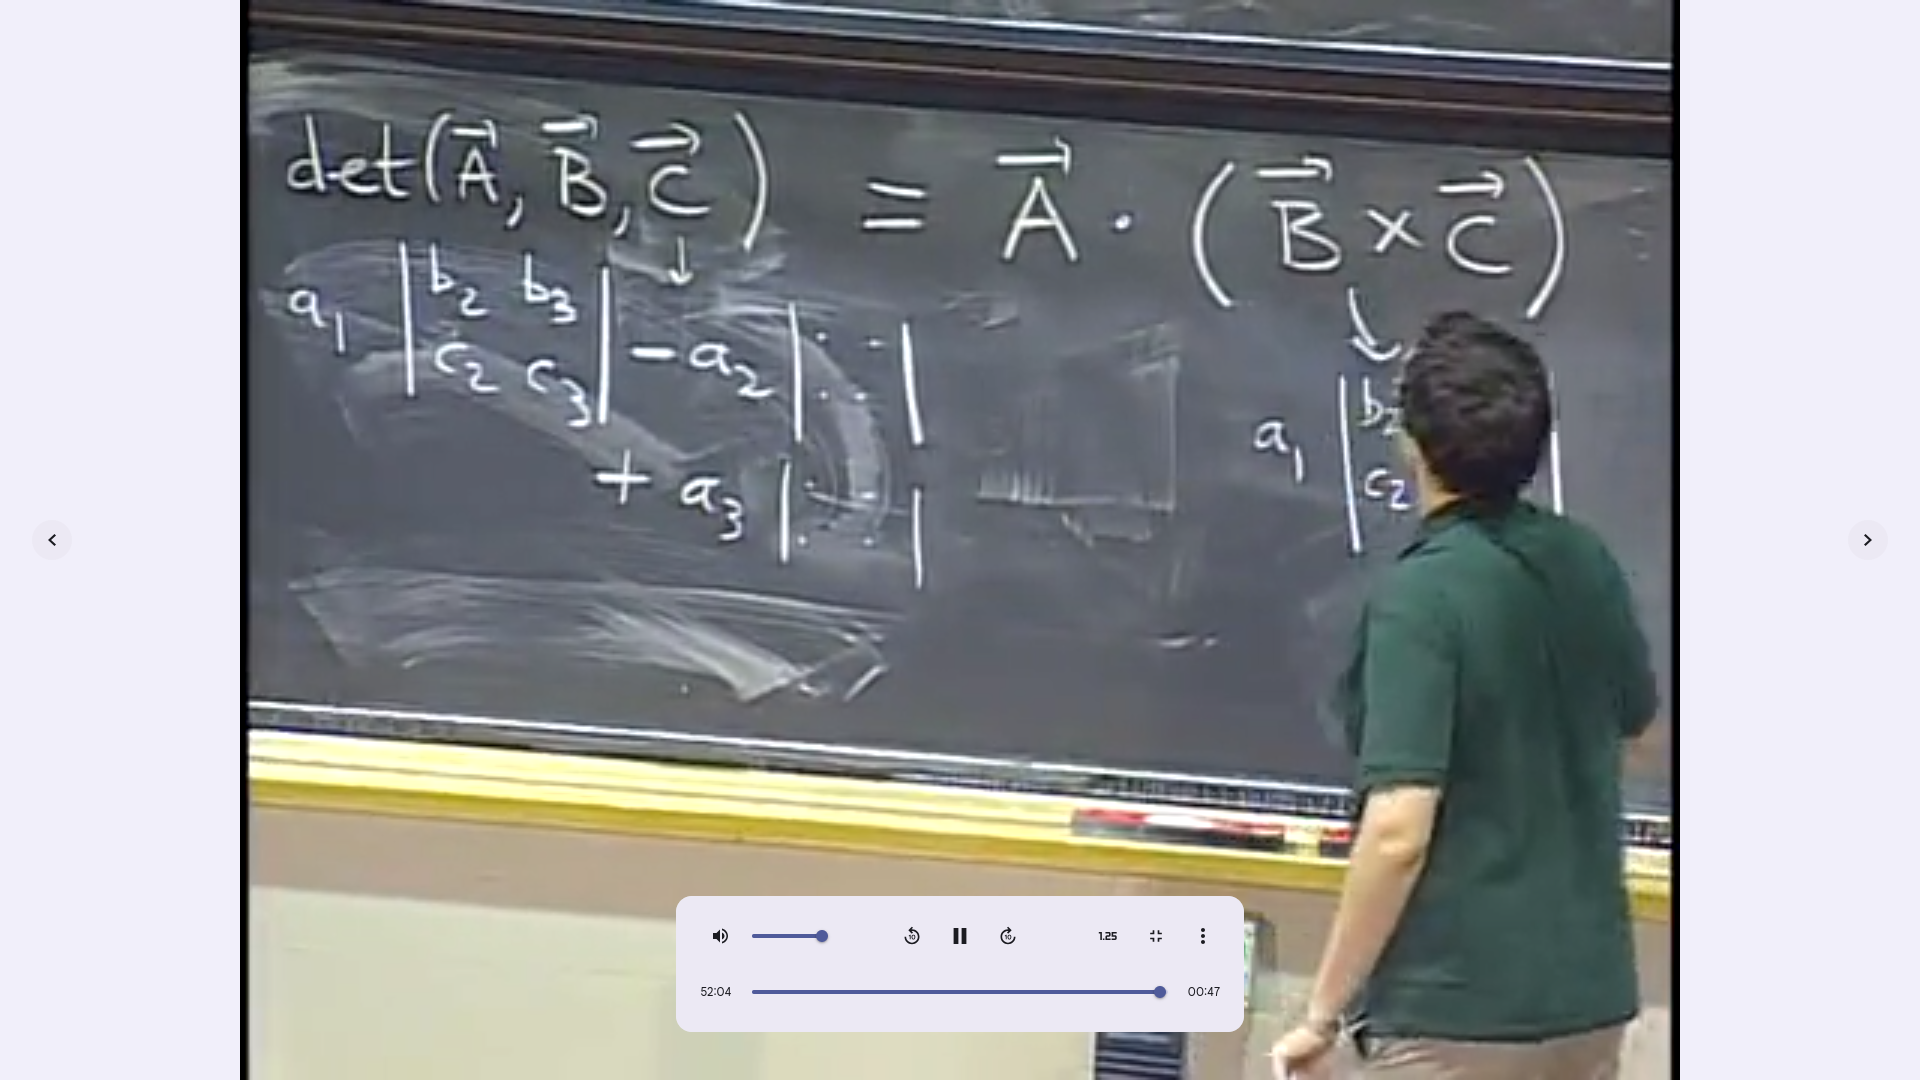 det(A⃗, B⃗, C⃗) = A⃗ · (B⃗ × C⃗)
a₁ |b₂ b₃| - a₂ |. .|
|c₂ c₃| |. .|
+ a₃ |. .|
|. .|
a₁ |b₂
|c₂
10
10
1.25
52:04
00:47